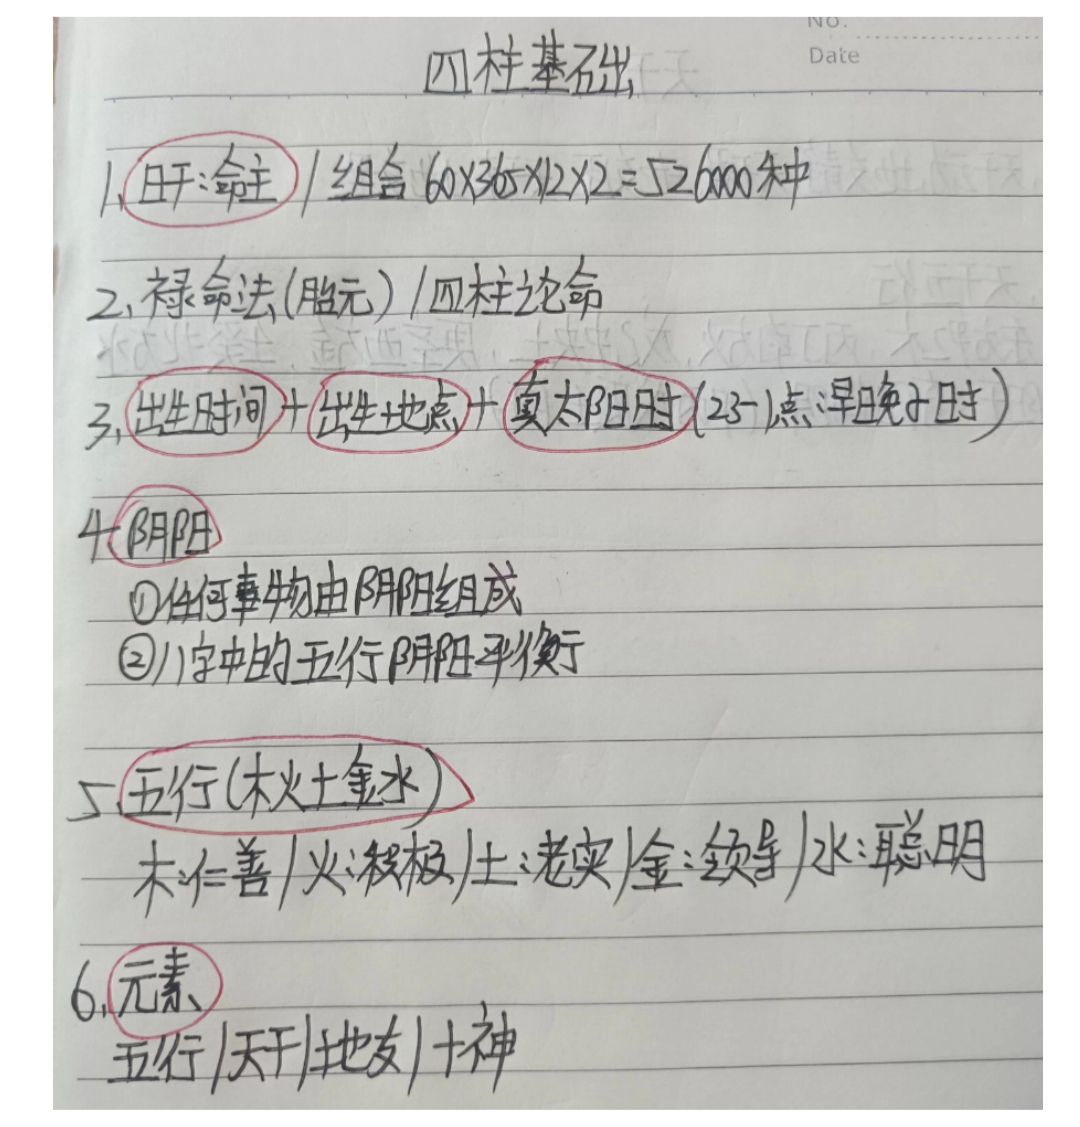 No.
Date
四柱基础
1、日干:命主 / 组合 60X365X12X2=526000种
2、禄命法(胎元) / 四柱论命
3、出生时间 + 出生地点 + 真太阳时 (23-1点:早晚子时)
4、阴阳
①任何事物由阴阳组成
②八字中的五行阴阳平衡
5、五行(木火土金水)
木:仁善 / 火:积极 / 土:老实 / 金:领导 / 水:聪明
6、元素
五行 / 天干 / 地支 / 十神